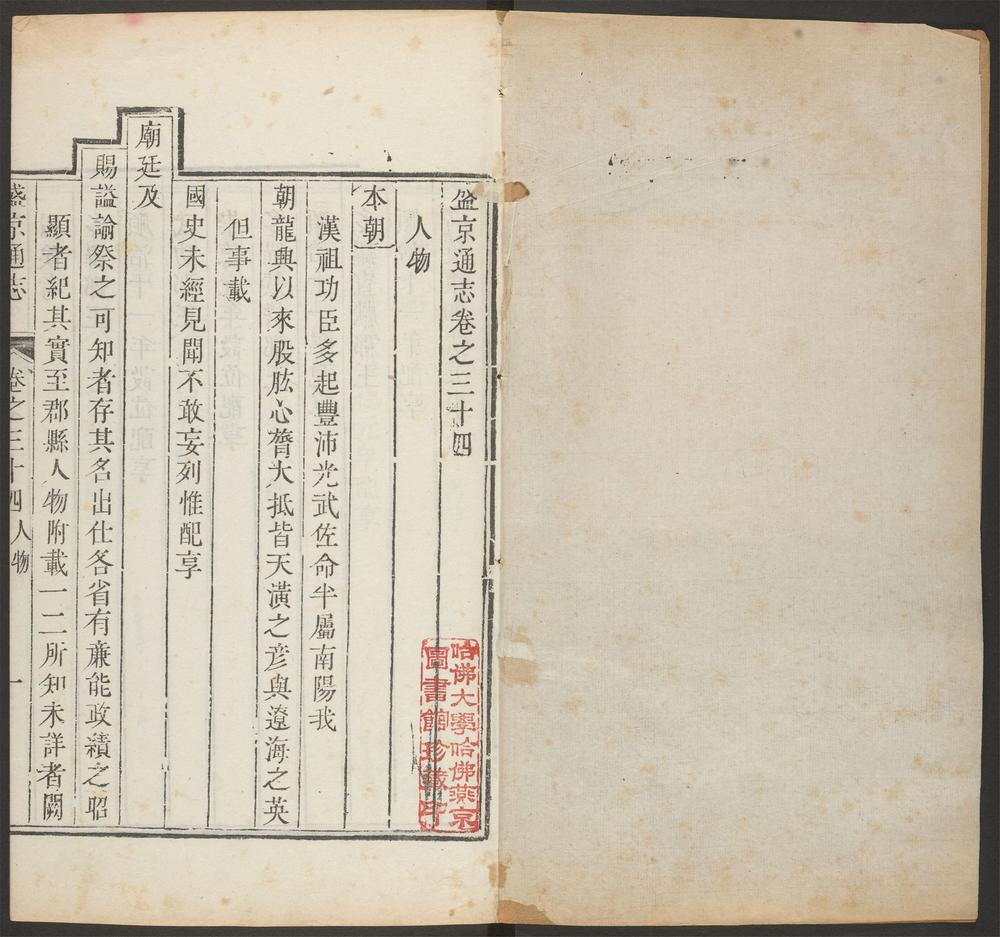 盛京通志卷之三十四
人物
本朝
漢祖功臣多起豐沛光武佐命半屬南陽我
朝龍興以來股肱心膂大抵皆天潢之彦與遼海之英
但事載
國史未經見聞不敢妄列惟配享
廟廷及
賜謚諭祭之可知者存其名出仕各省有亷能政績之昭
顯者紀其實至郡縣人物附載一二所知未詳者闕
盛京通志
卷之三十四人物
一
哈佛大學哈佛燕京
圖書館珍藏印